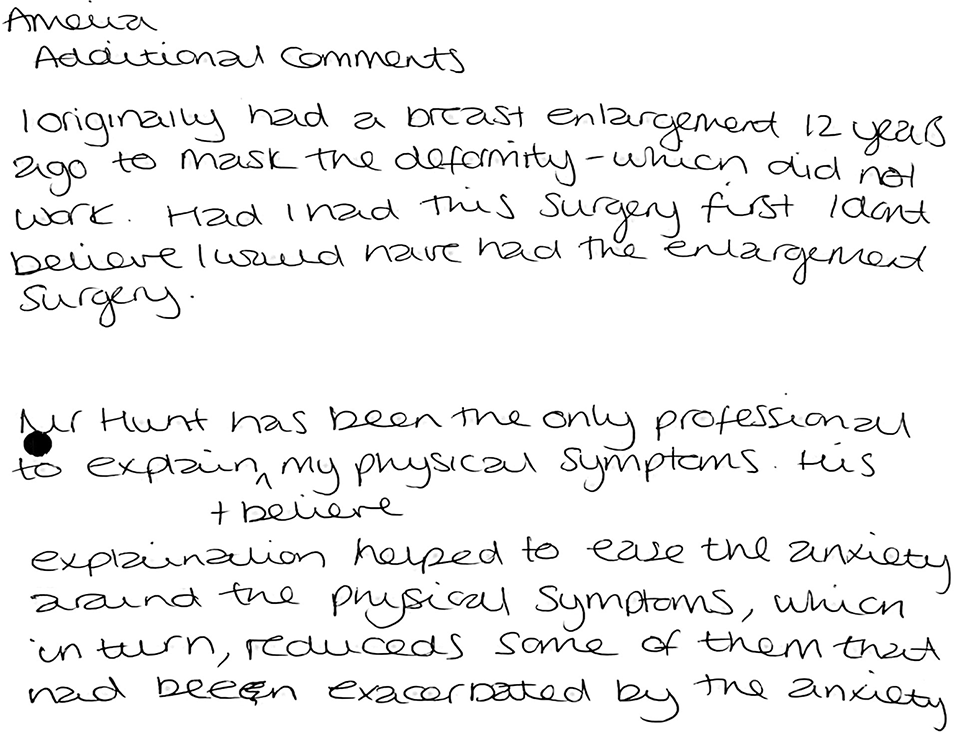 Amelia
Additional Comments
I originally had a breast enlargement 12 years
ago to mask the deformity - which did not
work. Had I had this surgery first I dont
believe I would have had the enlargement
surgery.
Mr Hunt has been the only professional
to explain ^ my physical symptoms. His
+ believe
explaination helped to ease the anxiety
around the physical symptoms, which
in turn, reduceds some of them that
had beeen exacerbated by the anxiety